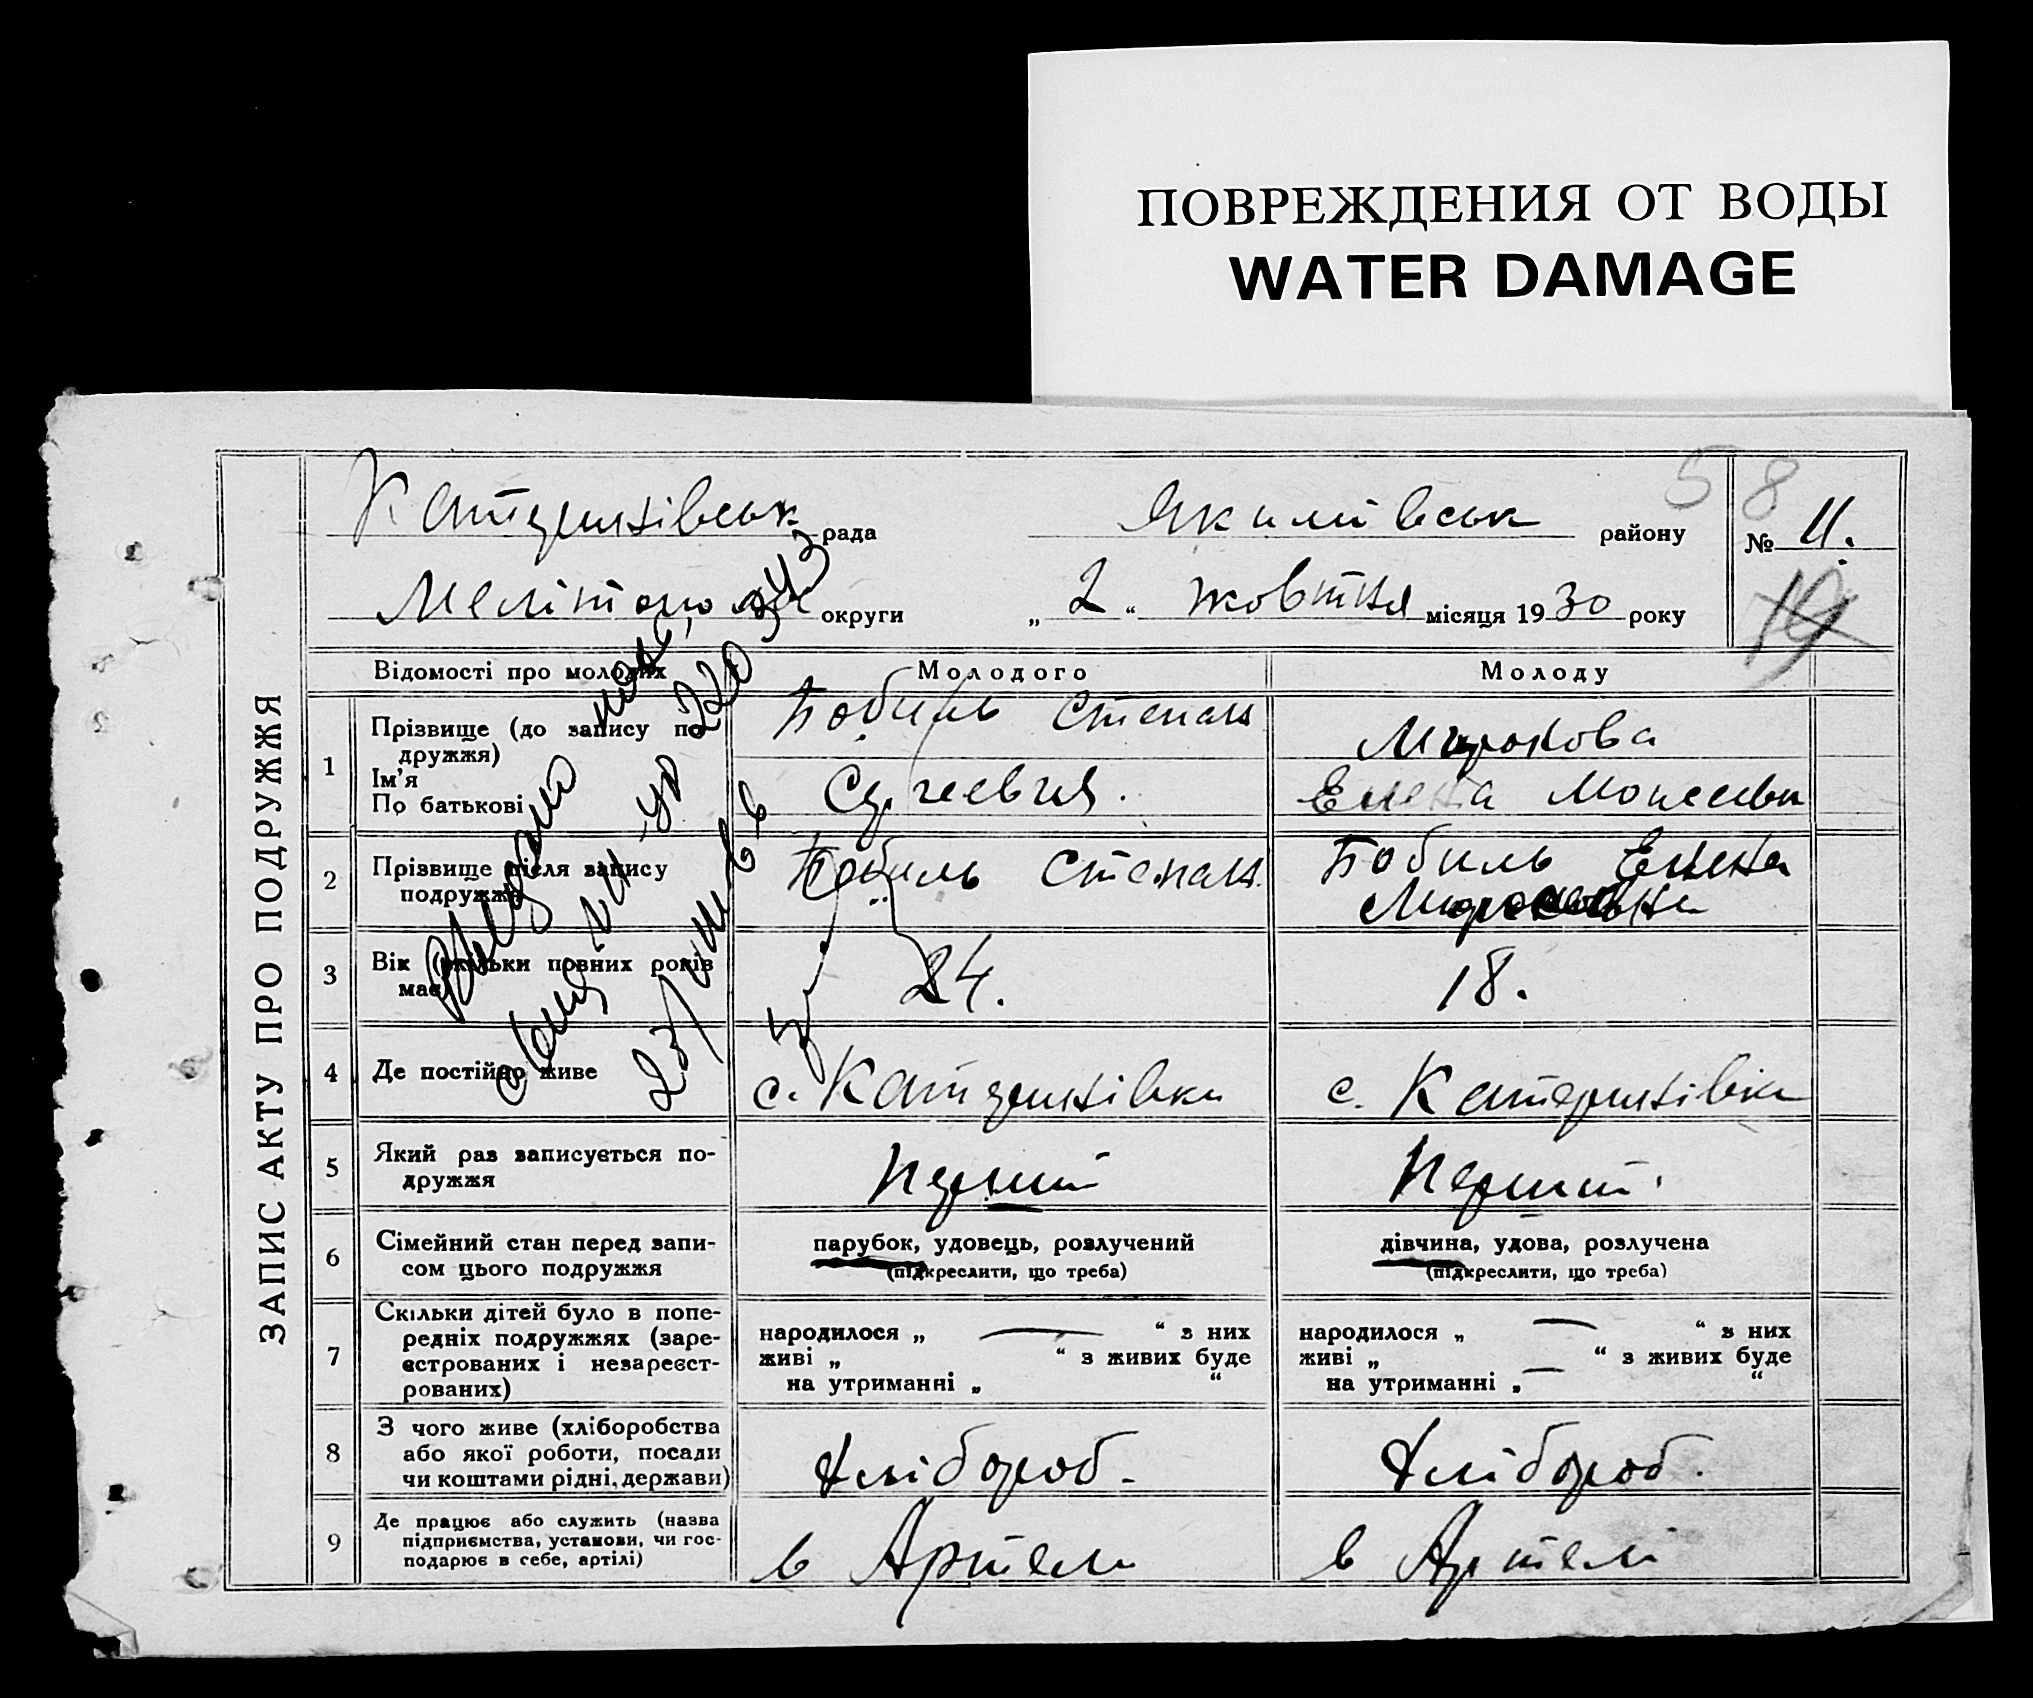 ПОВРЕЖДЕНИЯ ОТ ВОДЫ
WATER DAMAGE
ЗАПИС АКТУ ПРО ПОДРУЖЖЯ
58
Катеринівськ рада Якимівськ району № 11.
округи „ 2 “ жовтня місяця 1930 року
19
Відомості про молодих Молодого Молоду
1 Прізвище (до запису по-
дружжя)
Ім'я
По батькові
Бобиль Степан
Сергеевич.
Миронова
Елена
2 Прізвище після запису
подружжя
Бобиль Степан.
Бобиль Елена
3 Вік (скільки повних років
має)
24.
18.
4 Де постійно живе с. Катеринівки с. Катеринівки
5 Який раз записується по-
дружжя
Перший
Перший.
6 Сімейний стан перед запи-
сом цього подружжя
парубок, удовець, розлучений
(підкреслити, що треба)
дівчина, удова, розлучена
(підкреслити, що треба)
7 Скільки дітей було в попе-
редніх подружжях (заре-
єстрованих і незареєст-
рованих)
народилося „ — “ з них
живі „ “ з живих буде
на утриманні „ “
народилося „ — “ з них
живі „ “ з живих буде
на утриманні „ — “
8 З чого живе (хліборобства
або якої роботи, посади
чи коштами рідні, держави)
Хлібороб.
Хлібороб.
9 Де працює або служить (назва
підприємства, установи, чи гос-
подарює в себе, артілі)
в Артели
в Артелі
Видано
220343